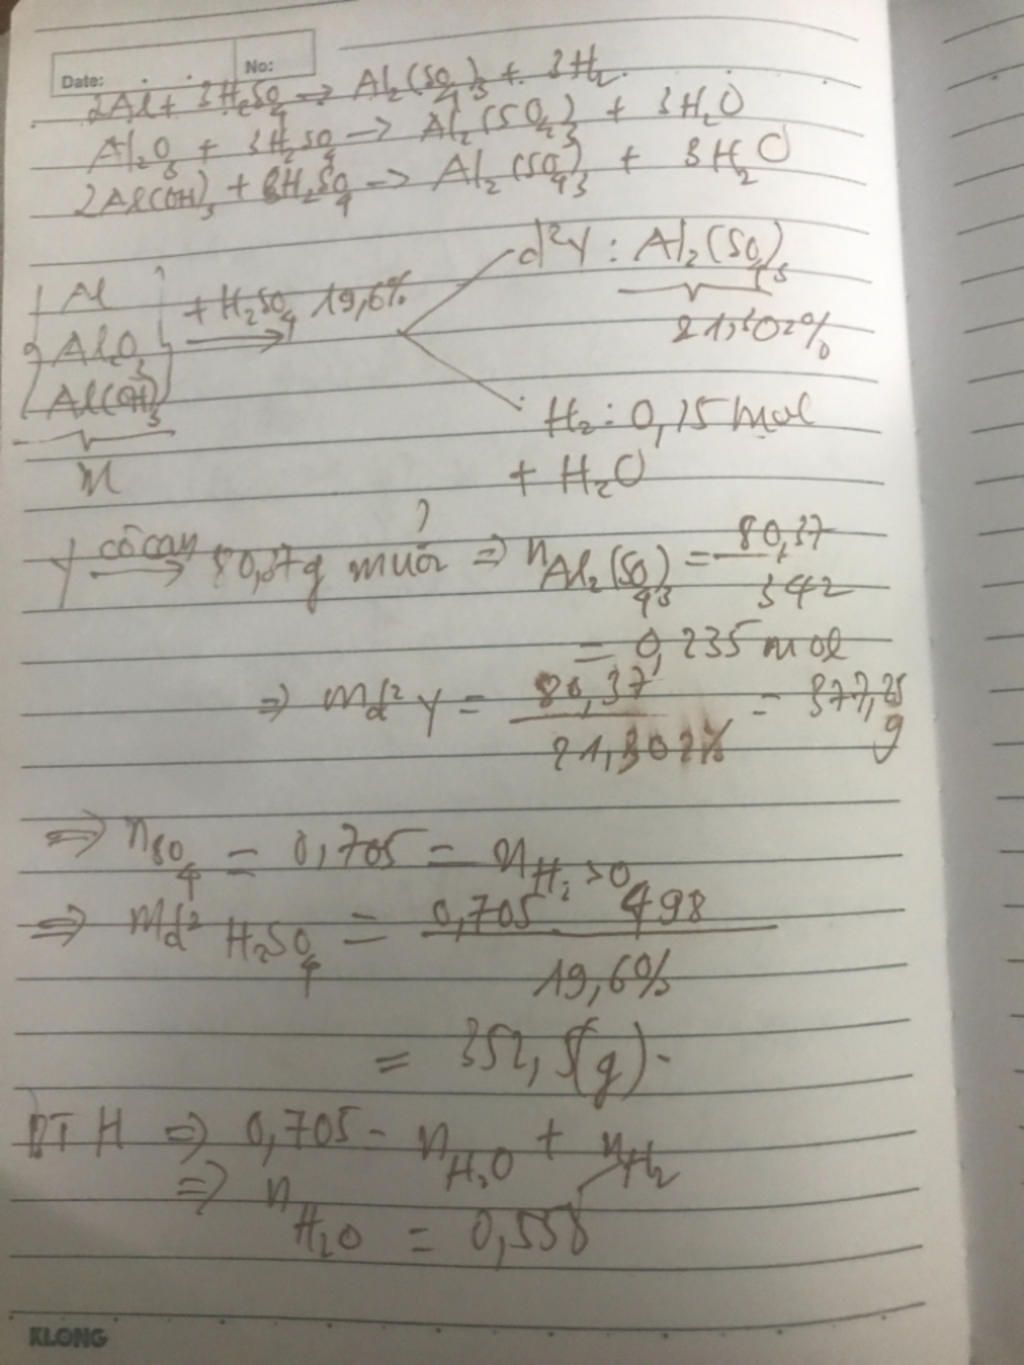 Date: No:
2Al + 3H₂SO₄ → Al₂(SO₄)₃ + 3H₂
Al₂O₃ + 3H₂SO₄ → Al₂(SO₄)₃ + 3H₂O
2Al(OH)₃ + 3H₂SO₄ → Al₂(SO₄)₃ + 3H₂O
d²Y : Al₂(SO₄)₃
Al
+ H₂SO₄ 19,6%
21,302%
Al₂O₃
Al(OH)₃
H₂ : 0,15 mol
M
+ H₂O
Y cô cạn → 80,37g muối ⇒ nAl₂(SO₄)₃ = 80,37 / 342
= 0,235 mol
⇒ md² Y = 80,37 / 21,302% = 377,25 g
⇒ nSO₄ = 0,705 = nH₂SO₄
⇒ md² H₂SO₄ = 0,705 . 98 / 19,6%
= 352,5(g).
BT H ⇒ 0,705 = nH₂O + nH₂
⇒ nH₂O = 0,558
KLONG